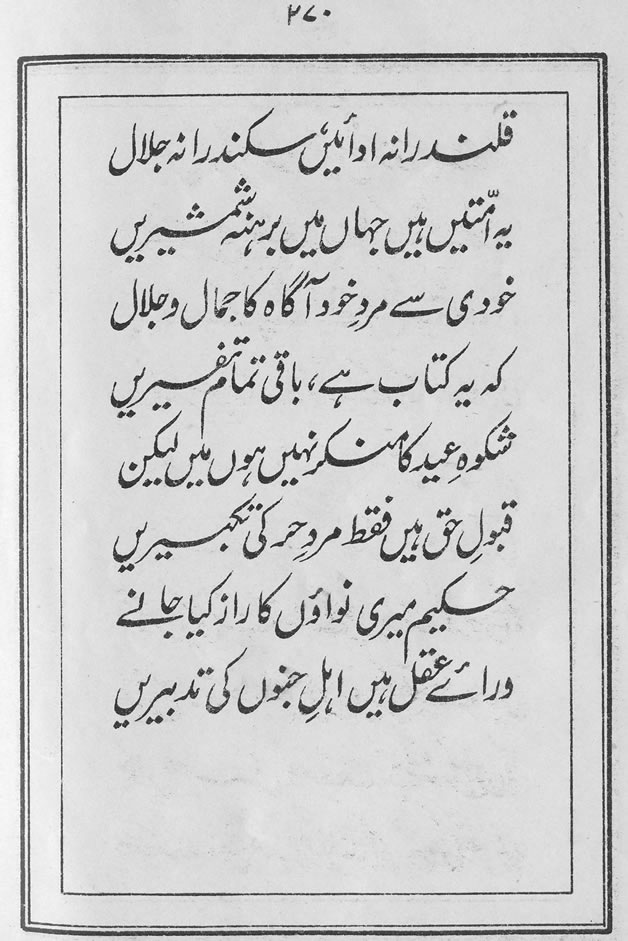 ۲۷۰
قلندرانہ ادائیں، سکندرانہ جلال
یہ اُمّتیں ہیں جہاں میں برہنہ شمشیریں
خودی سے مردِ خود آگاہ کا جمال و جلال
کہ یہ کتاب ہے، باقی تمام تفسیریں
شکوہِ عید کا منکر نہیں ہوں میں لیکن
قبولِ حق ہیں فقط مردِ حر کی تکبیریں
حکیم میری نواؤں کا راز کیا جانے
ورائے عقل ہیں اہلِ جنوں کی تدبیریں